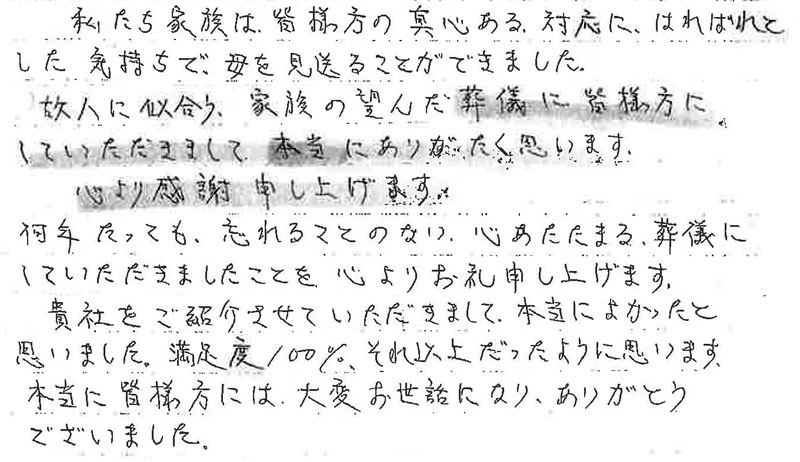 私たち家族は、皆様方の真心ある、対応に、はればれと
した気持ちで、母を見送ることができました。
故人に似合う、家族の望んだ葬儀に皆様方に
していただきまして、本当にありがたく思います。
心より感謝申し上げます。
何年たっても、忘れることのない、心あたたまる、葬儀に
していただきましたことを、心よりお礼申し上げます。
貴社をご紹介させていただきまして、本当によかったと
思いました。満足度100%、それ以上だったように思います。
本当に皆様方には、大変お世話になり、ありがとう
ございました。